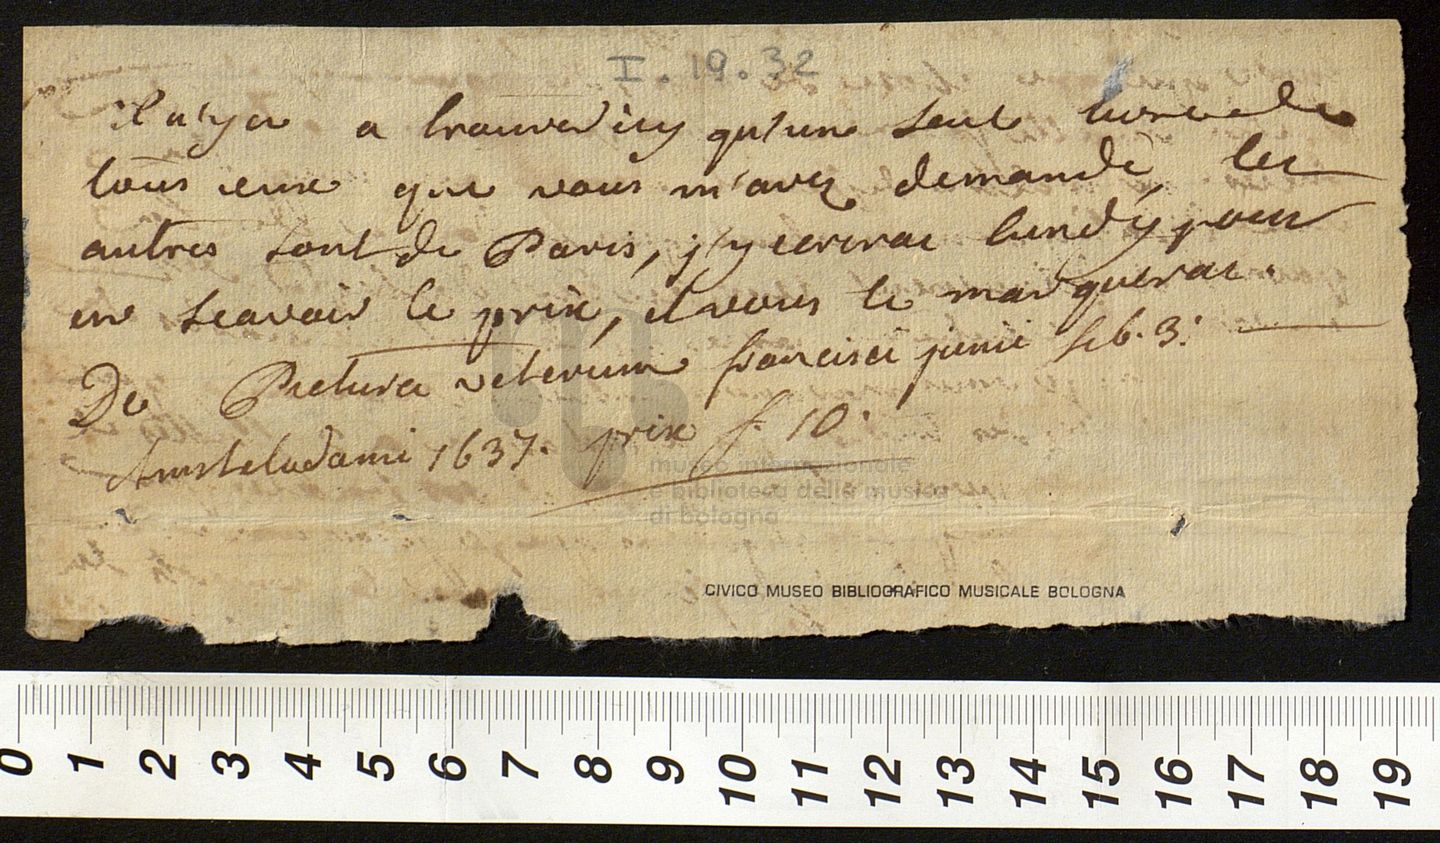 I. 19. 32
Il n'y a a trouver icy qu'un seul livre de
tous ceux que vous m'avez demandé, les
autres sont de Paris, j'y ecrirai lundy pour
en scavoir le prix, et vous le marquerai.
De Pictura veterum francisci junii lib. 3.
Amstelodami 1637. prix f. 10.
museo internazionale
e biblioteca della musica
di bologna
CIVICO MUSEO BIBLIOGRAFICO MUSICALE BOLOGNA
0 1 2 3 4 5 6 7 8 9 10 11 12 13 14 15 16 17 18 19